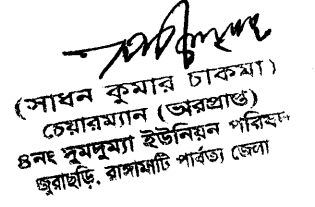 (সাধন কুমার চাকমা)
চেয়ারম্যান (ভারপ্রাপ্ত)
৪নং দুমদুম্যা ইউনিয়ন পরিষদ
জুরাছড়ি, রাঙ্গামাটি পার্বত্য জেলা